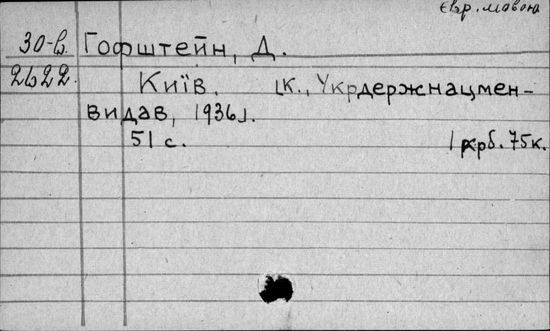 євр. мовою
30-в. Гофштейн, Д.
2622. Київ. [К., Укрдержнацмен-
видав, 1936].
51 с. 1 крб. 75к.